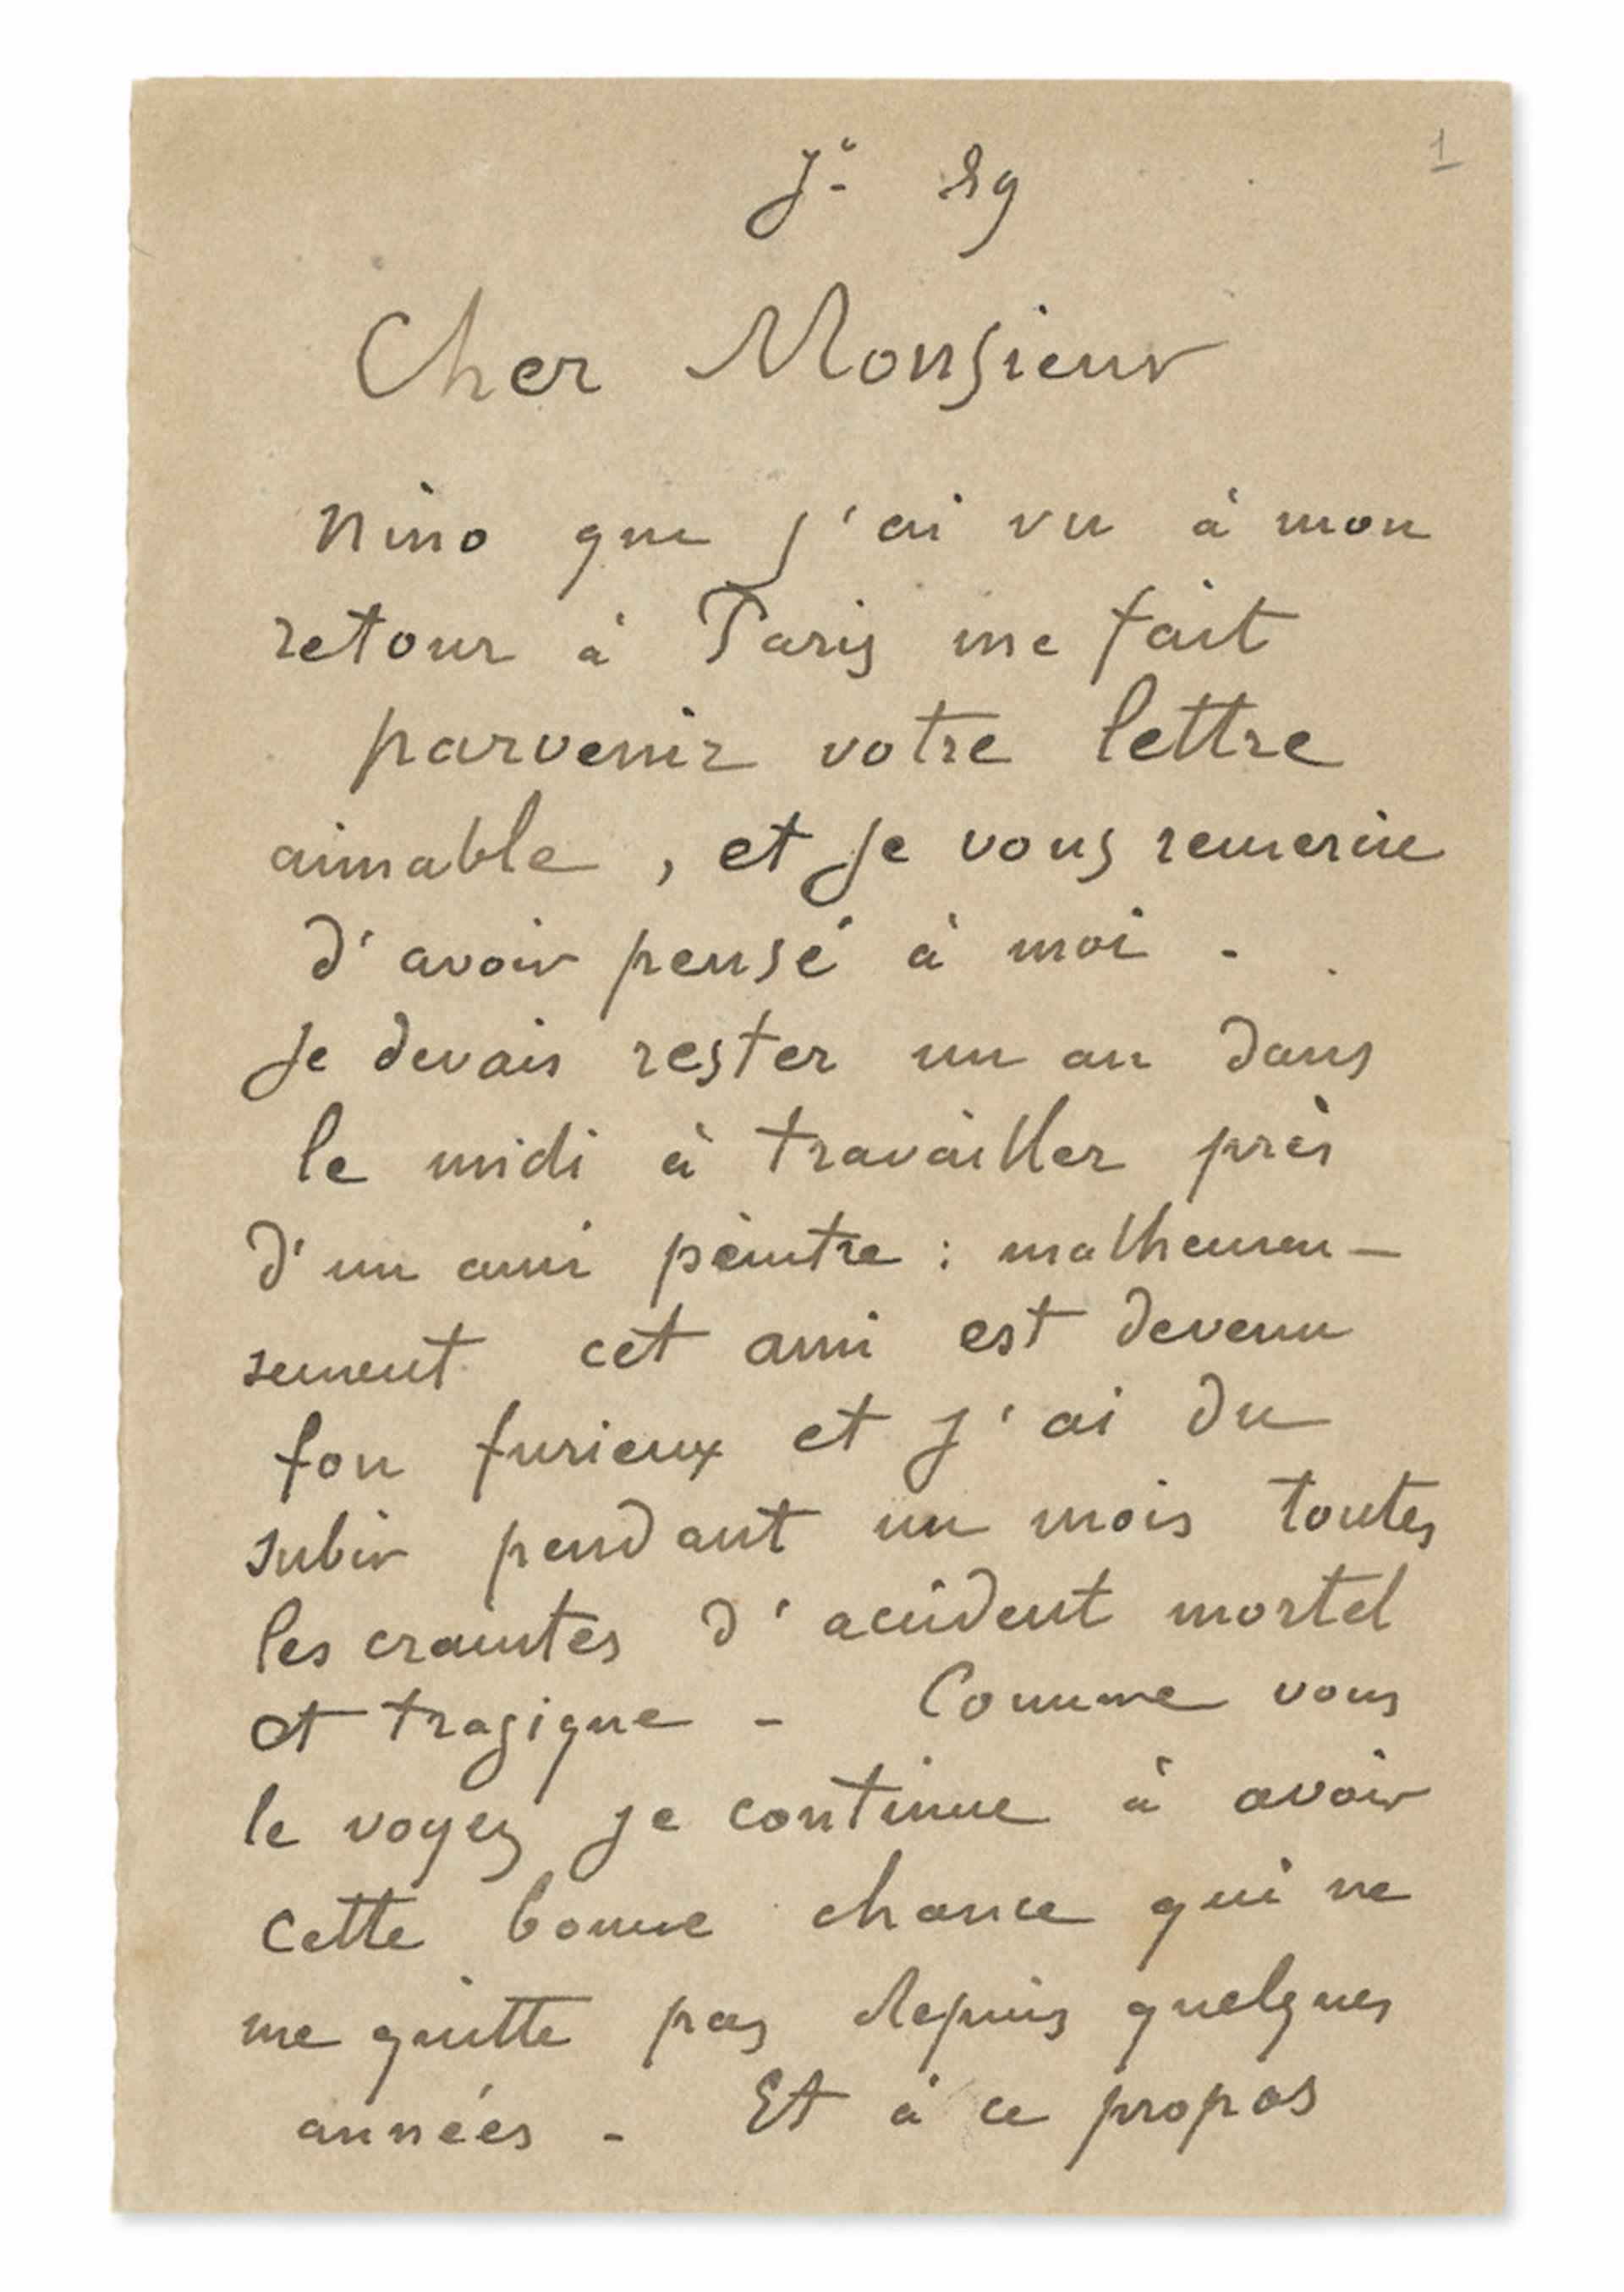 1
Jr 89
Cher Monsieur
Nino que j'ai vu à mon
retour à Paris me fait
parvenir votre lettre
aimable, et je vous remercie
d'avoir pensé à moi -
Je devais rester un an dans
le midi à travailler près
d'un ami peintre : malheureu-
sement cet ami est devenu
fou furieux et j'ai du
subir pendant un mois toutes
les craintes d'accident mortel
et tragique - Comme vous
le voyez je continue à avoir
cette bonne chance qui ne
me quitte pas depuis quelques
années - Et à ce propos